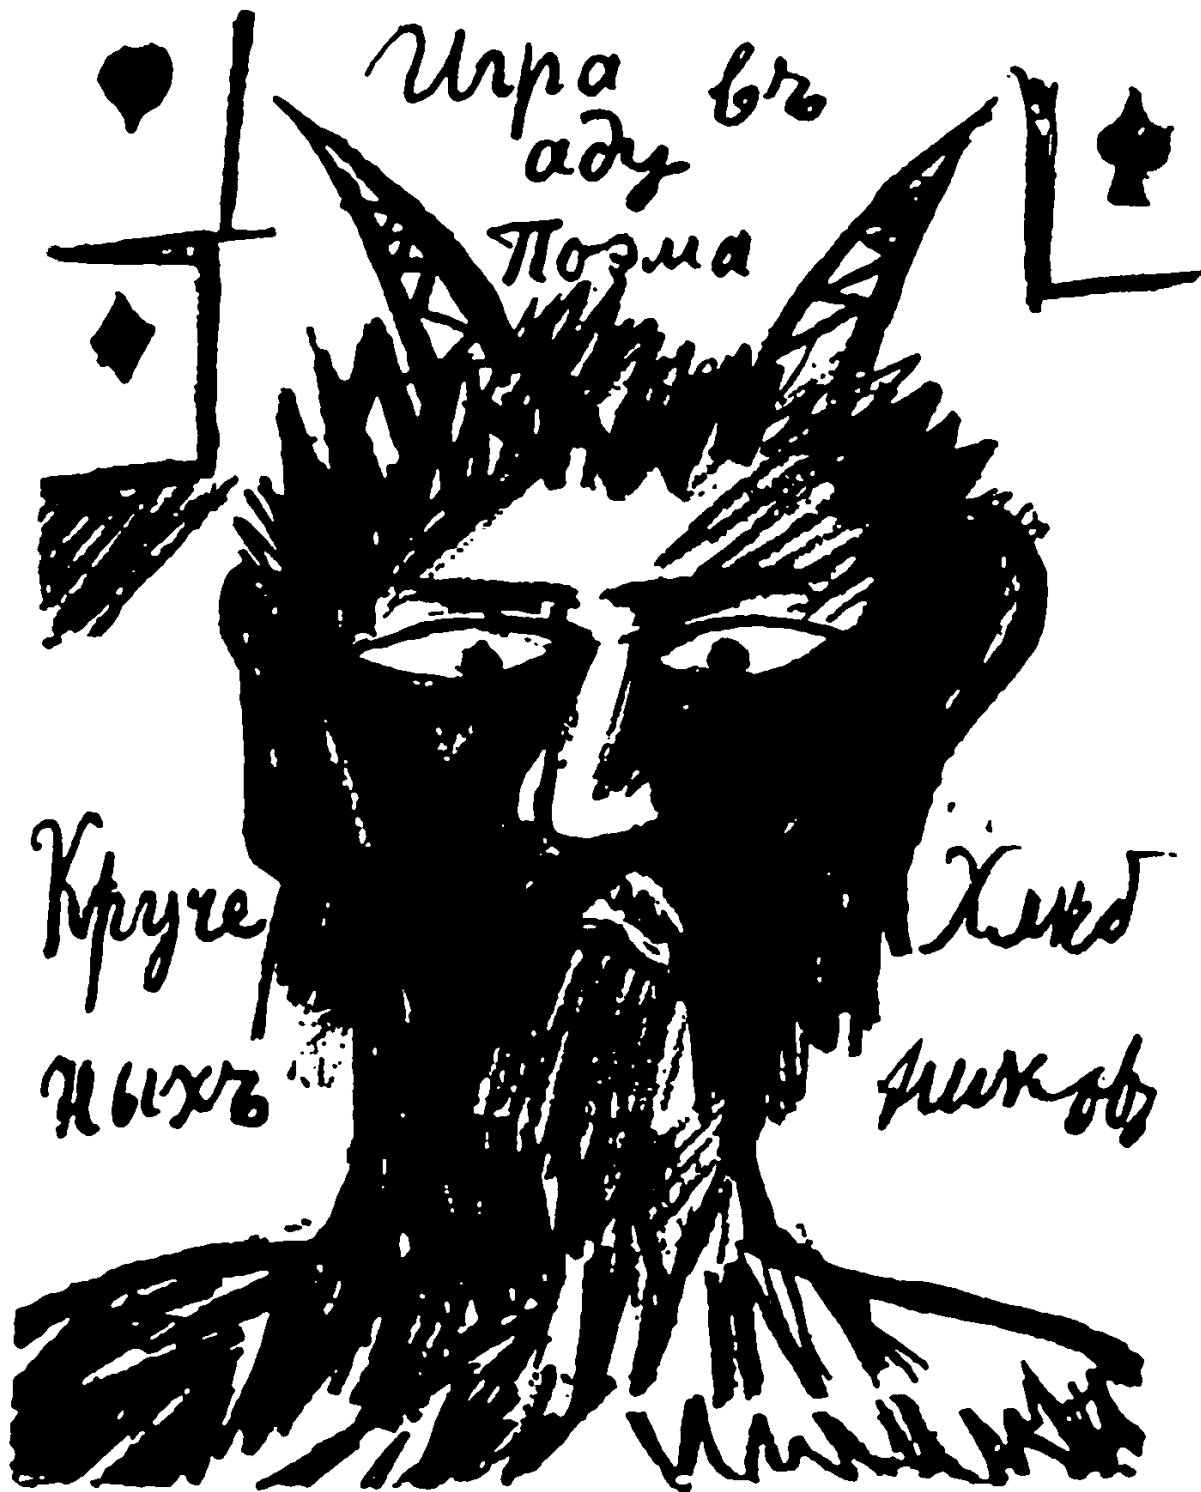 Игра въ
аду
Поэма
Круче
ныхъ
Хлѣб
никовъ